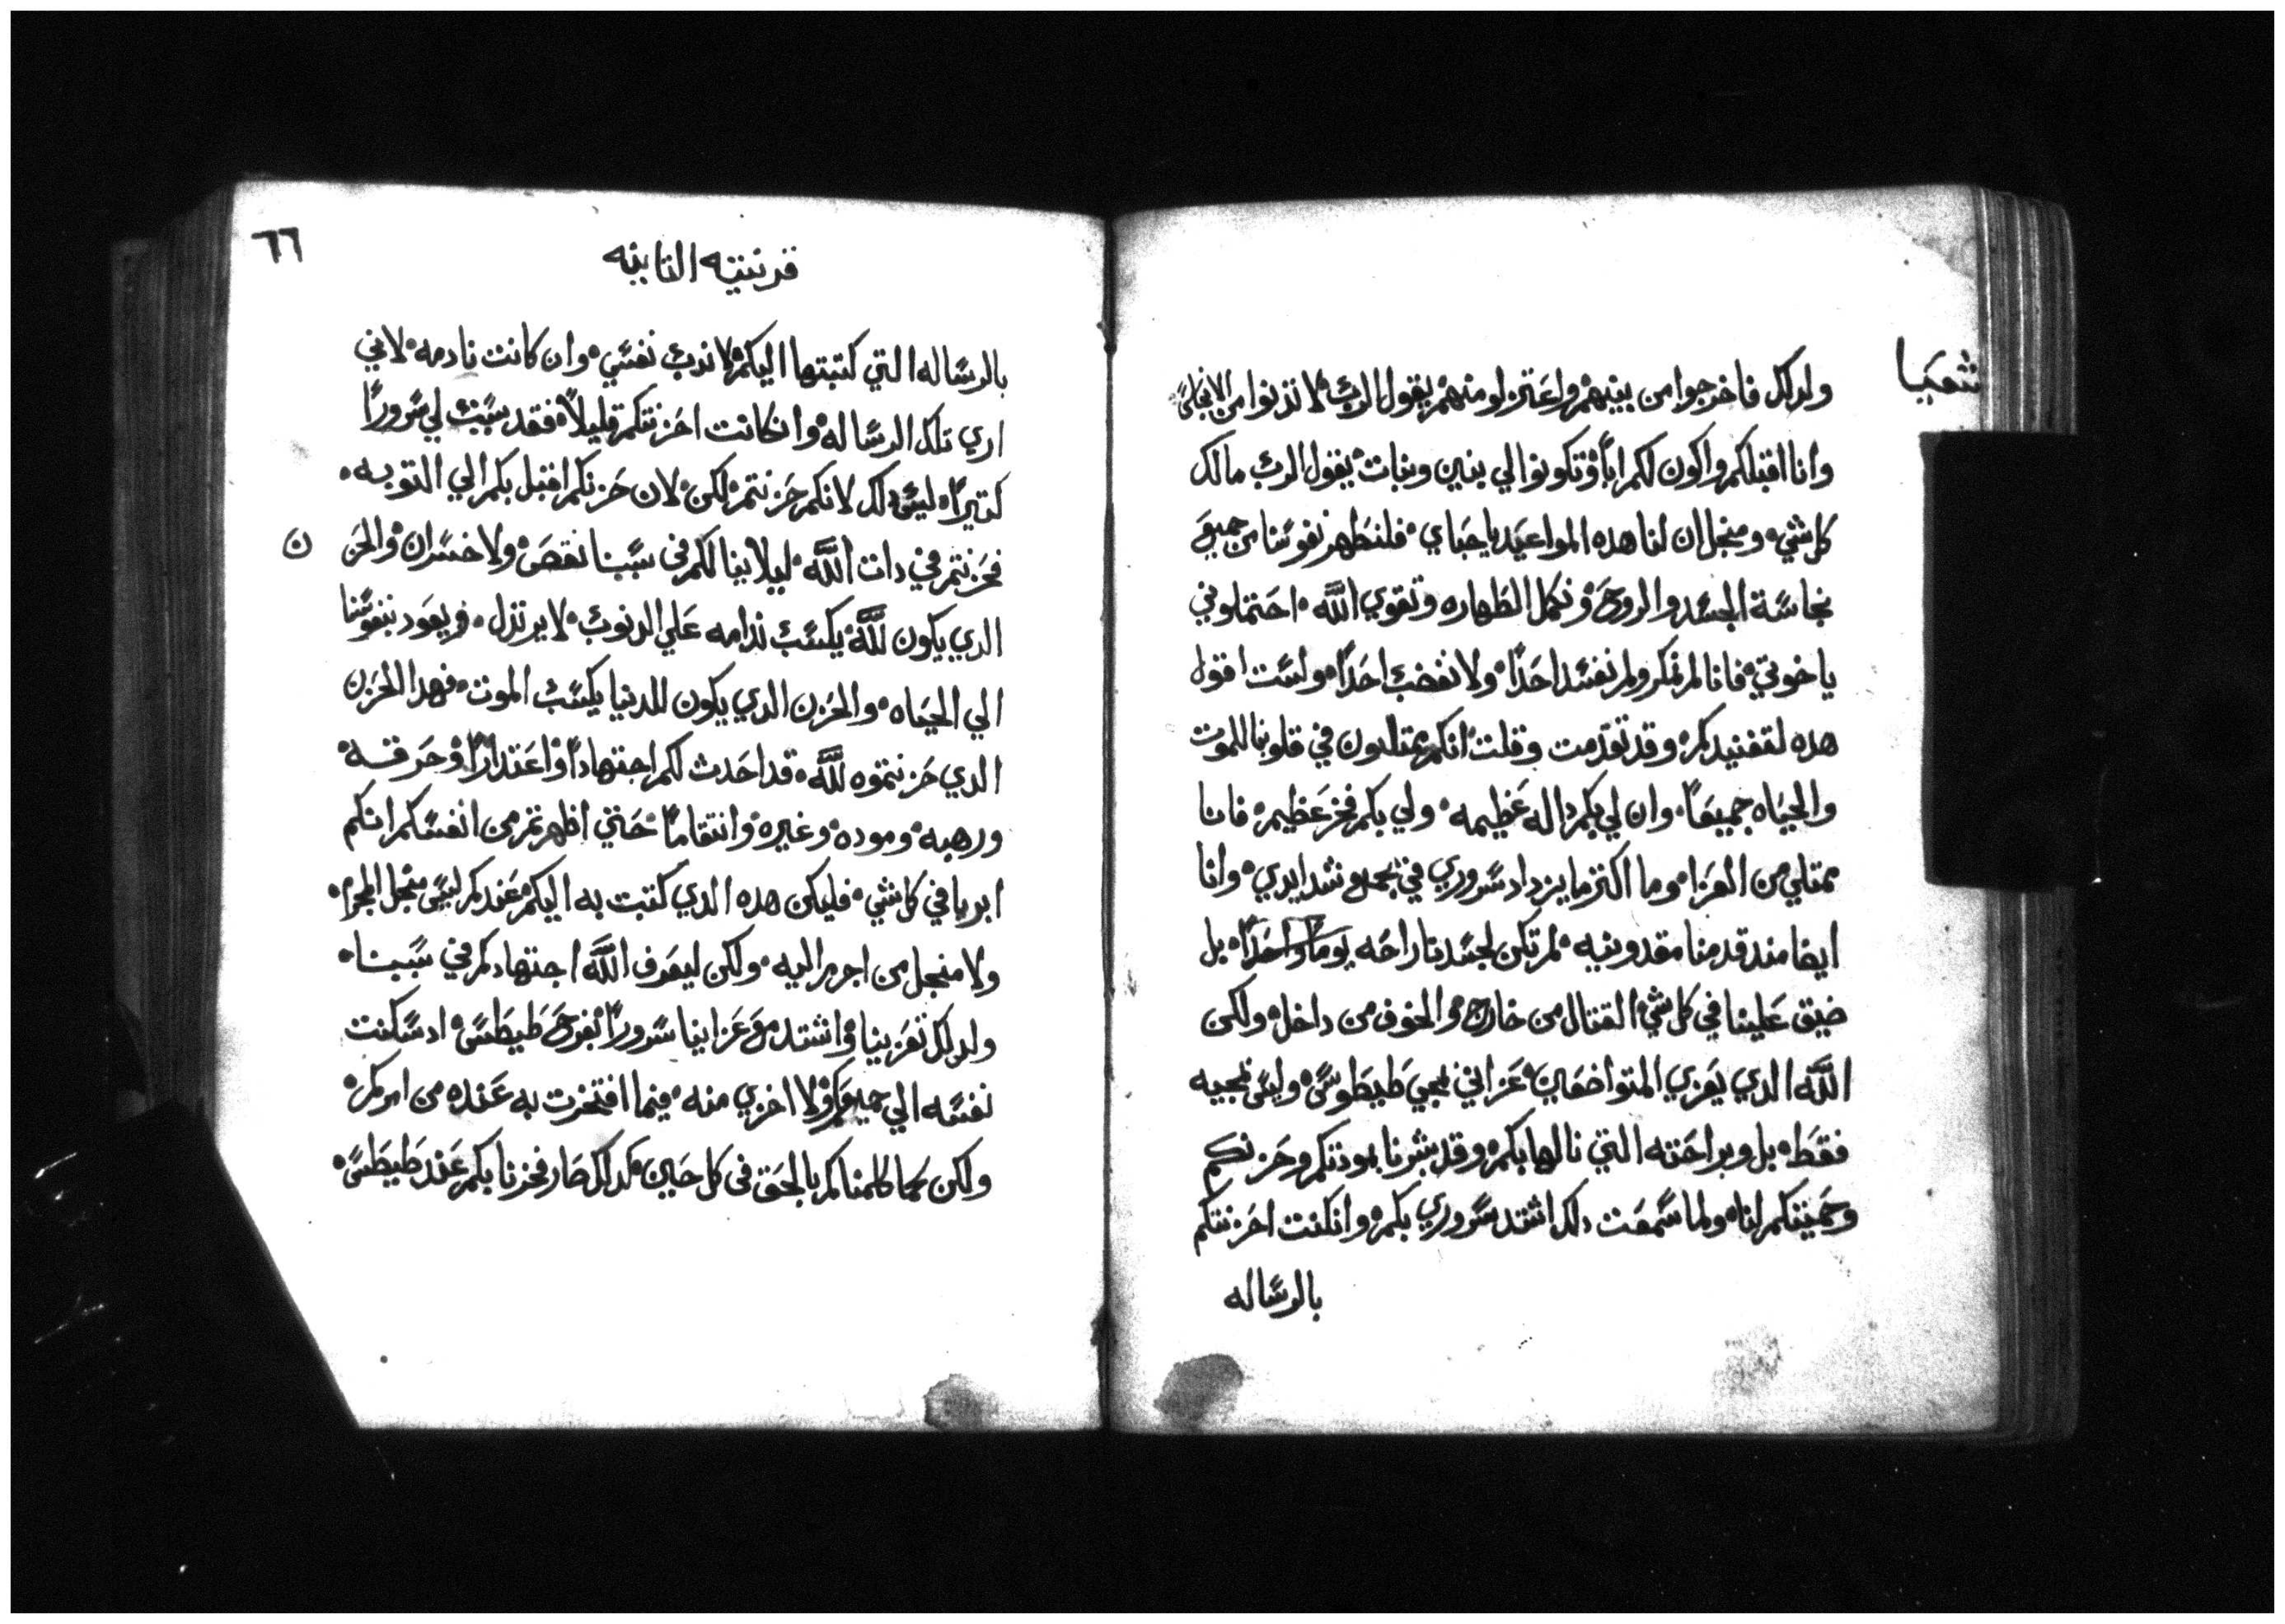 شعيا
ولدلك فاخرجوا من بينهم واعتزلو منهم يقول الرب لا تدنوا من الانجاس
وانا اقبلكم واكون لكم اباً وتكونوا لي بنين وبنات يقول الرب مالك
كل شي ومنجل ان لنا هده المواعيد ياحباي فلنطهر نفوسنا من جميع
نجاسة الجسد والروح ونكمل الطهاره وتقوي الله احتملوني
ياخوتي فانا لم نمكر ولم نفسد احداً ولا نغضب احداً ولست اقول
هده لتفنيدكم وقد تقدمت وقلت انكم متلدون في قلوبنا للموت
والحياه جميعاً وان لي بكم داله عظيمه ولي بكم فخر عظيم فانا
ممتلي من العزا وما اكتر ما يزداد سروري في جميع شدايدي وانا
ايضا مند قدمنا مقدونيه لم تكن لجسدنا راحه يوماً واحداً بل
ضيق علينا في كل شي القتال من خارج والخوف من داخل ولكن
الله الدي يعزي المتواضعين عزاني بمجي طيطوس وليس بمجيه
فقط بل وبراحته التي نالها بكم وقد بشرنا بمودتكم وحزنكم
وحميتكم لنا ولما سمعت دلك اشتد سروري بكم وانكنت احزنتكم
بالرساله
٦٦
قرنتيه التانيه
بالرساله التي كتبتها اليكم لا ندب نفسي وان كانت نادمه لاني
اري تلك الرساله وانكانت احزنتكم قليلاً فقد سببت لي سروراً
كتيراً ليس دلك لانكم حزنتم لكن لان حزنكم اقبل بكم الي التوبه
فحزنتم في دات الله ليلا ينالكم في سببنا نقص ولا خسران والحزن
الدي يكون لله يكسب ندامه علي الدنوب لا يرتزل ويعود بنفوسنا
الي الحياه والحزن الدي يكون للدنيا يكسب الموت فهدا الحزن
الدي حزنتموه لله قد احدث لكم اجتهاداً واعتداراً وحرقه
ورهبه وموده وغيره وانتقاماً حتي اظهرتم من انفسكم انكم
ابريا في كل شي فليكن هده الدي كتبت به اليكم عندكم ليس منجل المجرم
ولا منجل من اجرم اليه ولكن ليعرف الله اجتهادكم في سببنا
ولدلك تعزينا واشتد مع عزاينا سروراً بفرح طيطس اد سكنت
نفسه الي جميعكم ولا اخزي منه فيما افتخرت به عنده من امركم
ولكن كما كلمناكم بالحق في كل حين كدلك صار فخرنا بكم عند طيطس